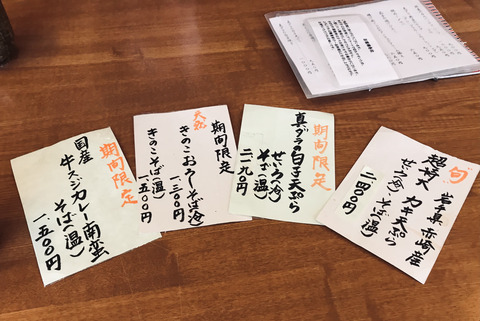 旬
岩手県 赤崎産
超特大 カキ天ぷら
せいろ(冷) そば(温)
二四〇〇円
期間限定
真ダラの白子天ぷら
せいろ(冷)
そば(温)
二一九〇円
期間限定
天然
きのこおろし(冷)
一、三〇〇円
きのこそば(温)
一、五〇〇円
期間限定
国産
牛スジカレー南蛮
そば(温)
一、五〇〇円